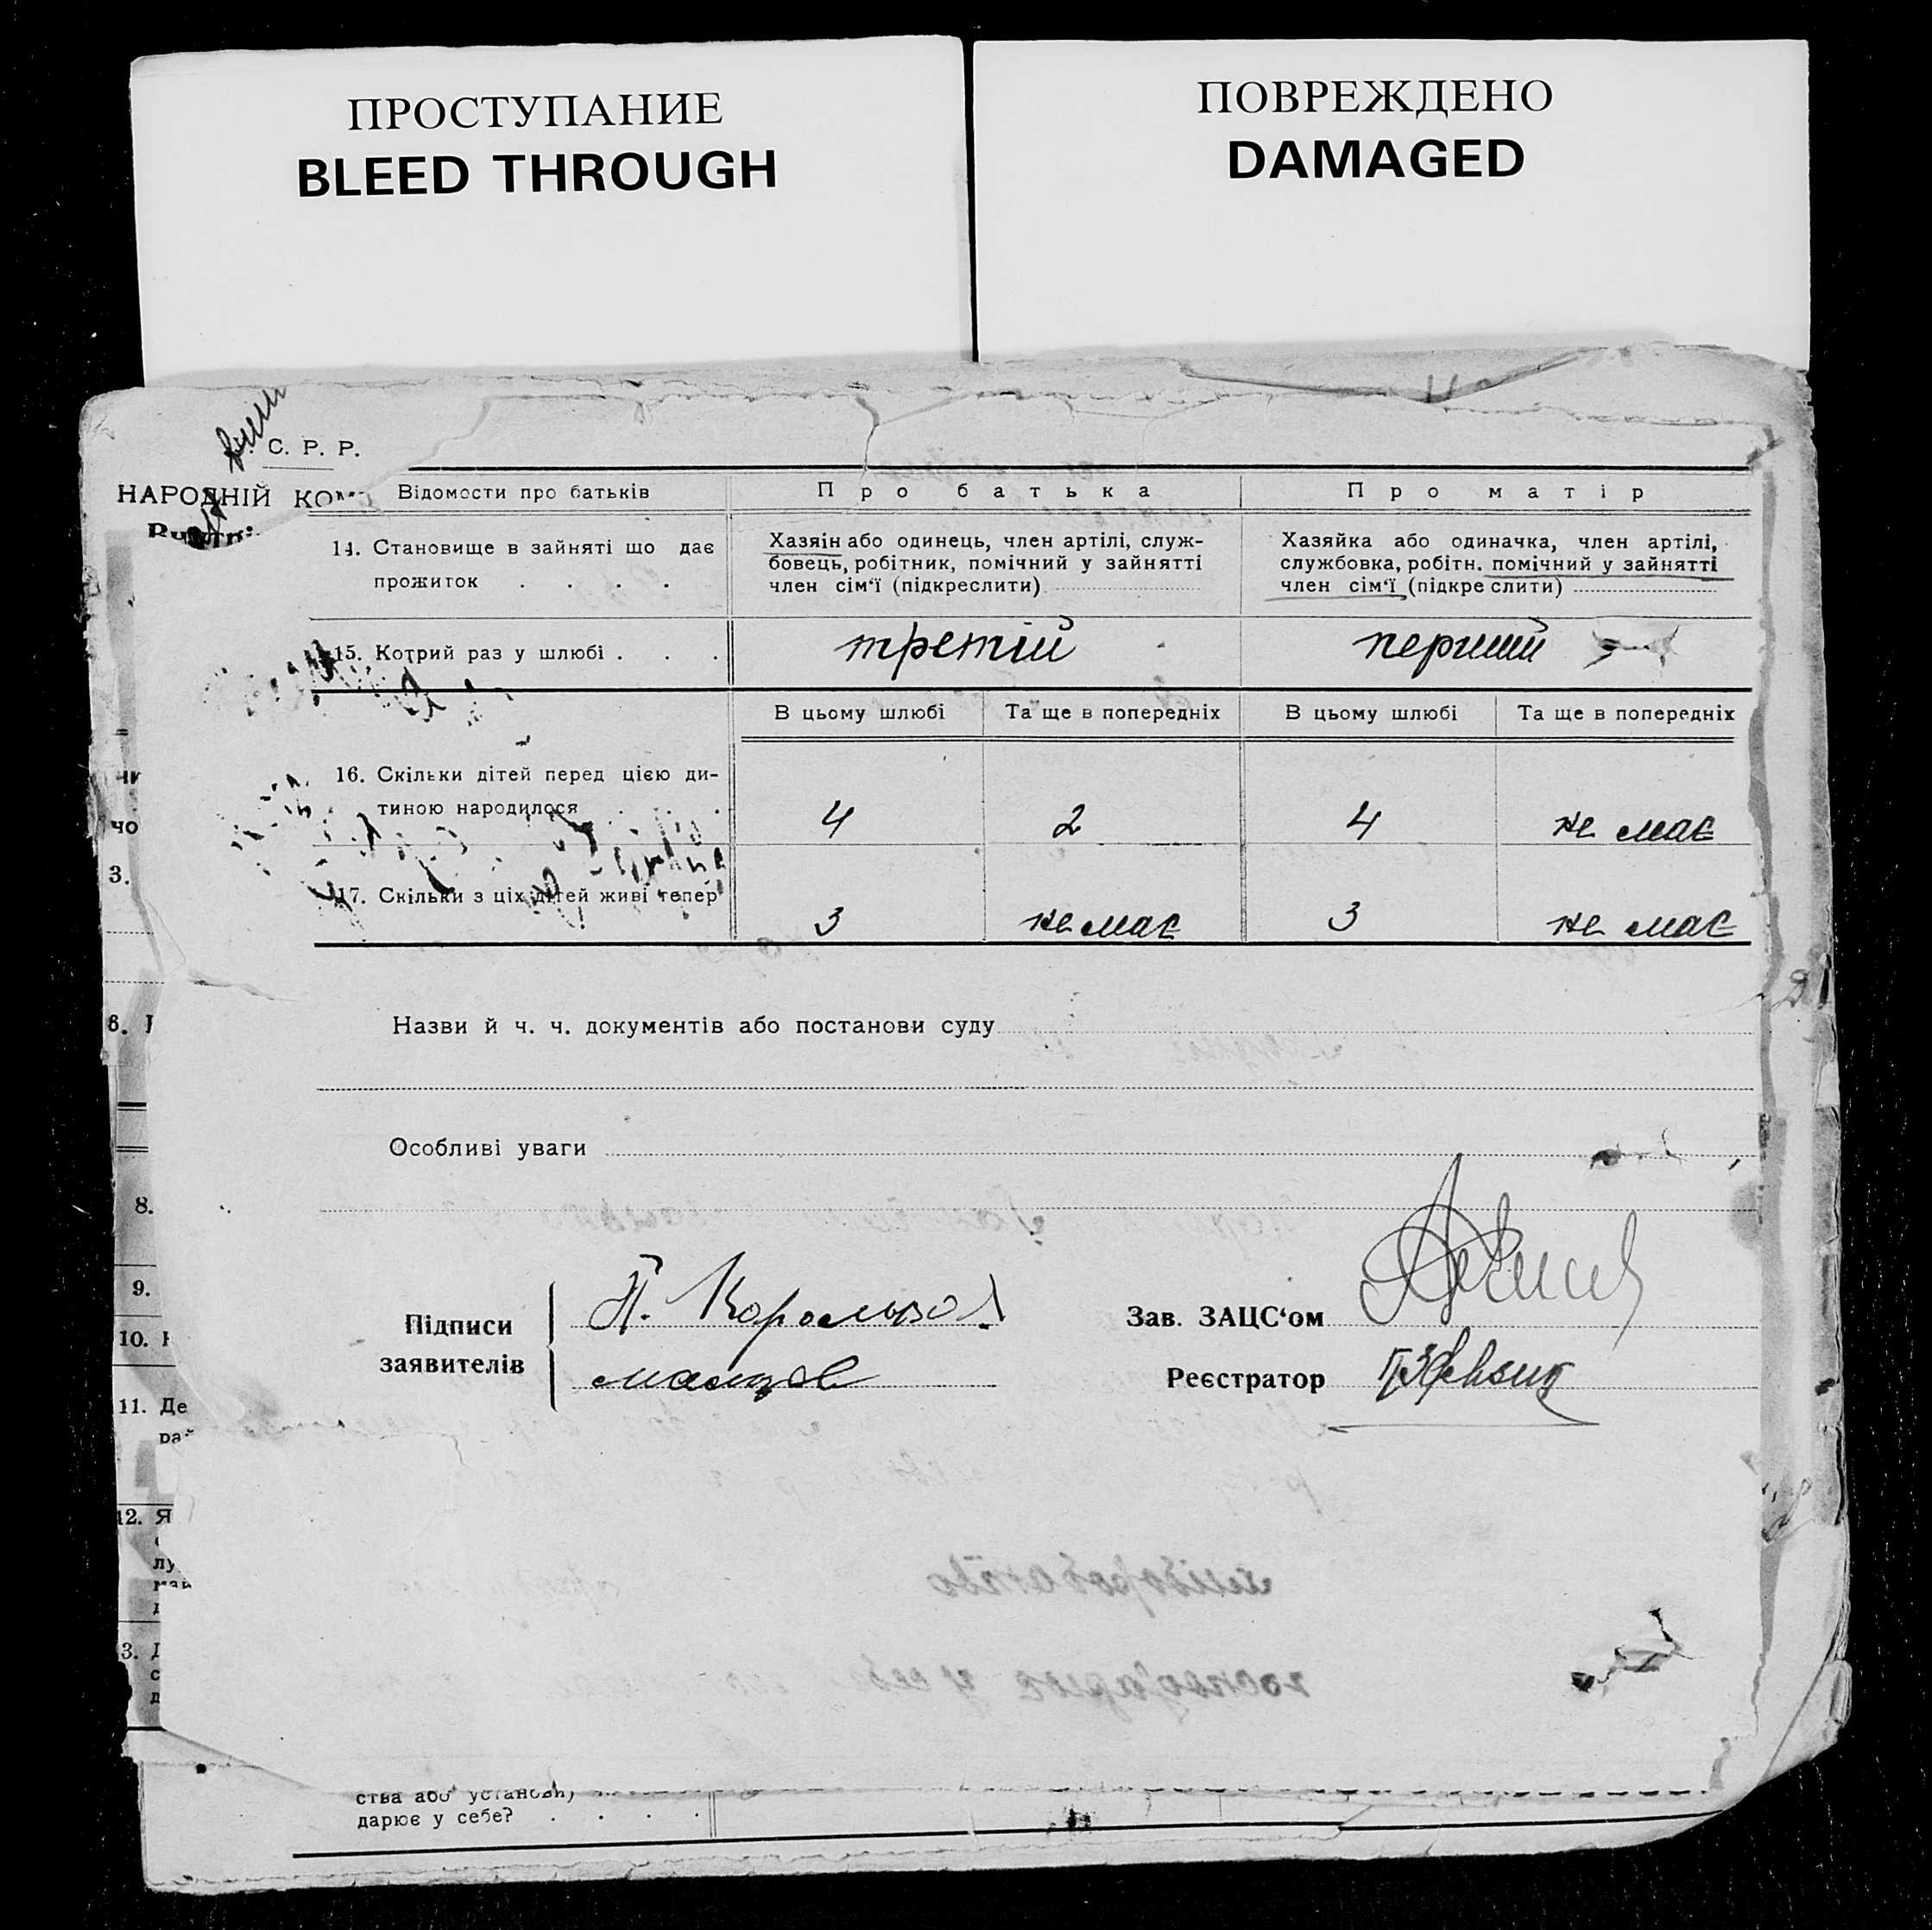 ПРОСТУПАНИЕ
BLEED THROUGH
ПОВРЕЖДЕНО
DAMAGED
С. Р. Р.
НАРОДНІЙ КОМ
Відомости про батьків
Про батька
Про матір
14. Становище в зайняті що дає
прожиток . . . .
Хазяін або одинець, член артілі, служ-
бовець, робітник, помічний у зайнятті
член сім‘ї (підкреслити)
Хазяйка або одиначка, член артілі,
службовка, робітн. помічний у зайнятті
член сім‘ї (підкреслити)
15. Котрий раз у шлюбі . . .
третій
перший
В цьому шлюбі
Та ще в попередніх
В цьому шлюбі
Та ще в попередніх
16. Скільки дітей перед цією ди-
тиною народилося
4
2
4
не має
17. Скільки з ціх дітей живі тепер
3
не має
3
не має
Назви й ч. ч. документів або постанови суду
Особливі уваги
Підписи
заявителів
П.
Зав. ЗАЦС‘ом
Реєстратор
чо
3.
6.
8.
9.
10.
11. Де
12. Я
лу
3. Д
с
д
ства або установи)
дарює у себе? . . . .